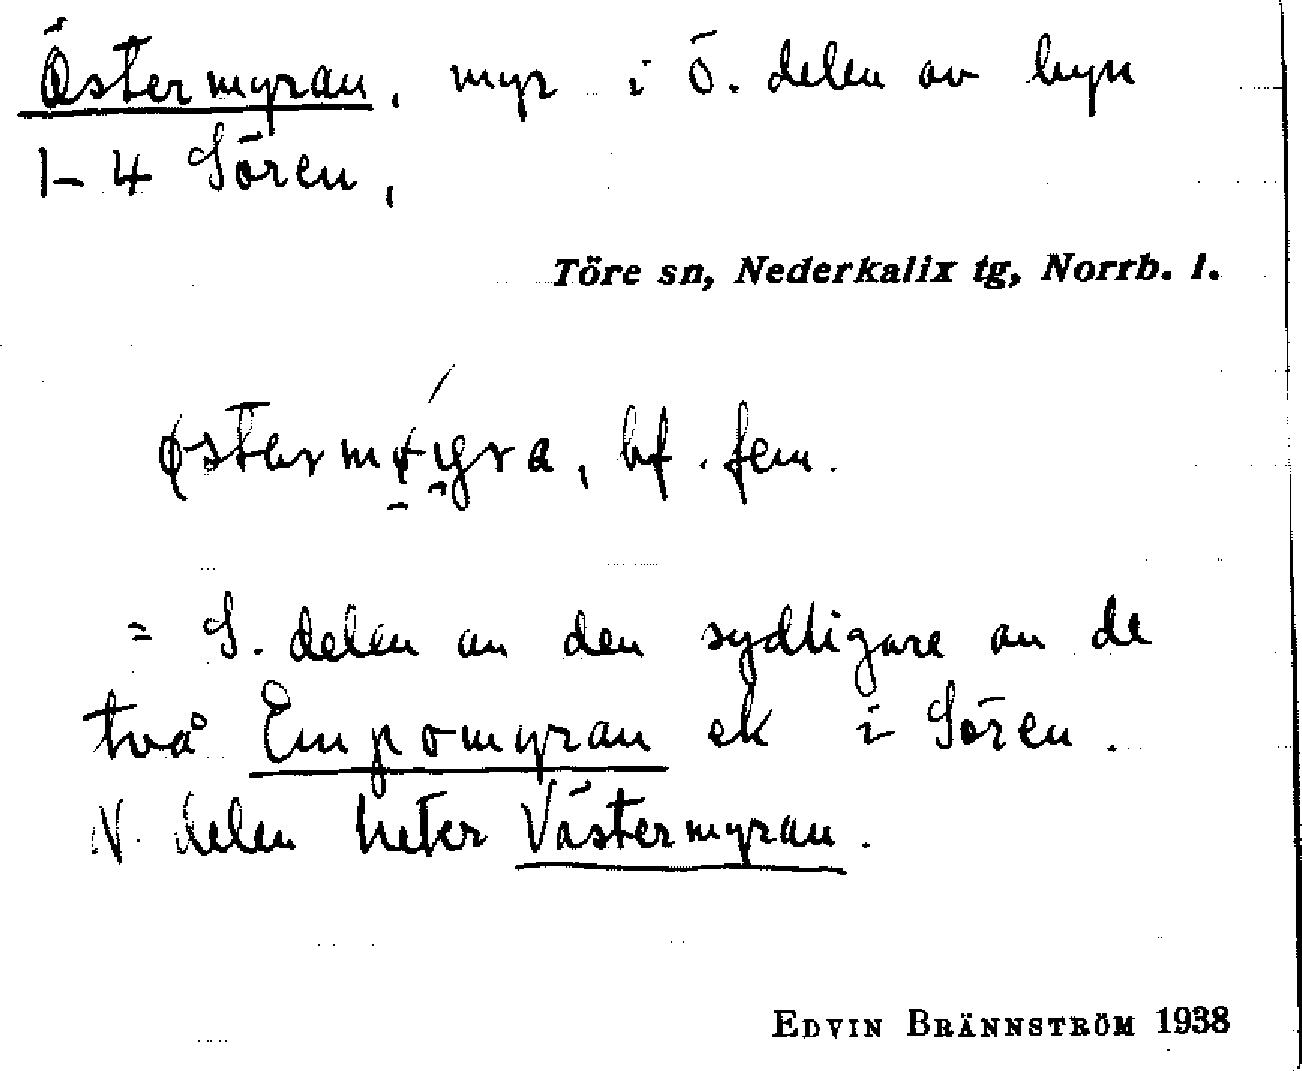 Östermyran, myr i ö. delen av byn
1-4 Sören,
Töre sn, Nederkalix tg, Norrb. l.
bf. fem.
= S. delen av den sydligare av de
två Empomyran ek i Sören.
N. delen heter Västermyran.
EDVIN BRÄNNSTRÖM 1938